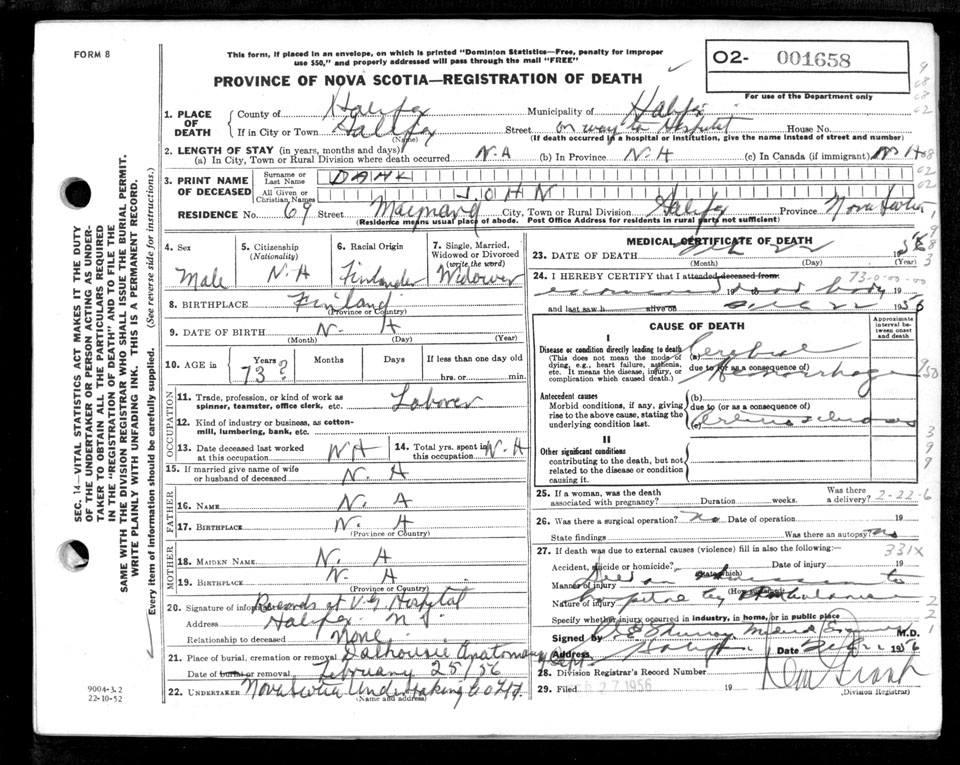 FORM 8
This form, if placed in an envelope, on which is printed "Dominion Statistics—Free, penalty for improper
use $50," and properly addressed will pass through the mail "FREE"
PROVINCE OF NOVA SCOTIA—REGISTRATION OF DEATH
O2- 001658
For use of the Department only
1. PLACE OF DEATH
County of Halifax Municipality of Halifax
If in City or Town Halifax Street on way to Hospital House No.
(Name) (If death occurred in a hospital or institution, give the name instead of street and number)
2. LENGTH OF STAY (in years, months and days)
(a) In City, Town or Rural Division where death occurred N.A (b) In Province N.A (c) In Canada (if immigrant) N A
3. PRINT NAME OF DECEASED
Surname or Last Name DAHK
All Given or Christian Names JOHN
RESIDENCE No. 69 Street Maynard City, Town or Rural Division Halifax Province Nova Scotia
(Residence means usual place of abode. Post Office Address for residents in rural parts not sufficient)
4. Sex
Male
5. Citizenship
(Nationality)
N.A
6. Racial Origin
Finlander
7. Single, Married,
Widowed or Divorced
(write the word)
Widower
8. BIRTHPLACE Finland
(Province or Country)
9. DATE OF BIRTH N. A
(Month) (Day) (Year)
10. AGE in Years Months Days If less than one day old
73? hrs. or min.
OCCUPATION
11. Trade, profession, or kind of work as
spinner, teamster, office clerk, etc. Laborer
12. Kind of industry or business, as cotton-
mill, lumbering, bank, etc.
13. Date deceased last worked
at this occupation NA
14. Total yrs. spent in
this occupation N.A
15. If married give name of wife
or husband of deceased N. A
FATHER
16. NAME N. A
17. BIRTHPLACE N. A
(Province or Country)
MOTHER
18. MAIDEN NAME N. A
19. BIRTHPLACE N. A
(Province or Country)
20. Signature of informant Records of V.G Hospital
Address Halifax N.S.
Relationship to deceased None
21. Place of burial, cremation or removal Dalhousie Anatomy
Date of burial or removal February 25/56
22. UNDERTAKER Nova Scotia Undertaking Co Ltd.
(Name and address)
MEDICAL CERTIFICATE OF DEATH
23. DATE OF DEATH Feb 22 56
(Month) (Day) (Year)
24. I HEREBY CERTIFY that I attended deceased from: 73-0-00-00
examined dead body 195
and last saw h alive on Feb 22 1956
CAUSE OF DEATH
Approximate interval between onset and death
I
Disease or condition directly leading to death (a) Cerebral
(This does not mean the mode of
dying, e.g., heart failure, asthenia,
etc. It means the disease, injury, or
complication which caused death.)
due to (or as a consequence of)
Hemorrhage
Antecedent causes
Morbid conditions, if any, giving
rise to the above cause, stating the
underlying condition last.
(b)
due to (or as a consequence of)
(c) Arteriosclerosis
II
Other significant conditions
contributing to the death, but not
related to the disease or condition
causing it.
25. If a woman, was the death
associated with pregnancy? Duration weeks. Was there
a delivery? 2-22-6
26. Was there a surgical operation? no Date of operation 19
State findings Was there an autopsy? no
27. If death was due to external causes (violence) fill in also the following: 331X
Accident, suicide or homicide? (State which) Date of injury 19
Manner of injury Died on admission to
(How sustained)
Nature of injury hospital by Ambulance
Specify whether injury occurred in industry, in home, or in public place
Signed by Medical Examiner M.D.
Address Halifax Date Feb 1956
28. Division Registrar's Record Number
29. Filed 27 1956 19
(Division Registrar)
SEC. 14—VITAL STATISTICS ACT MAKES IT THE DUTY
OF THE UNDERTAKER OR PERSON ACTING AS UNDER-
TAKER TO OBTAIN ALL THE PARTICULARS REQUIRED
IN THE "REGISTRATION OF DEATH" AND TO FILE THE
SAME WITH THE DIVISION REGISTRAR WHO SHALL ISSUE THE BURIAL PERMIT.
WRITE PLAINLY WITH UNFADING INK. THIS IS A PERMANENT RECORD.
Every item of information should be carefully supplied. (See reverse side for instructions.)
9004-3.2
22-10-52